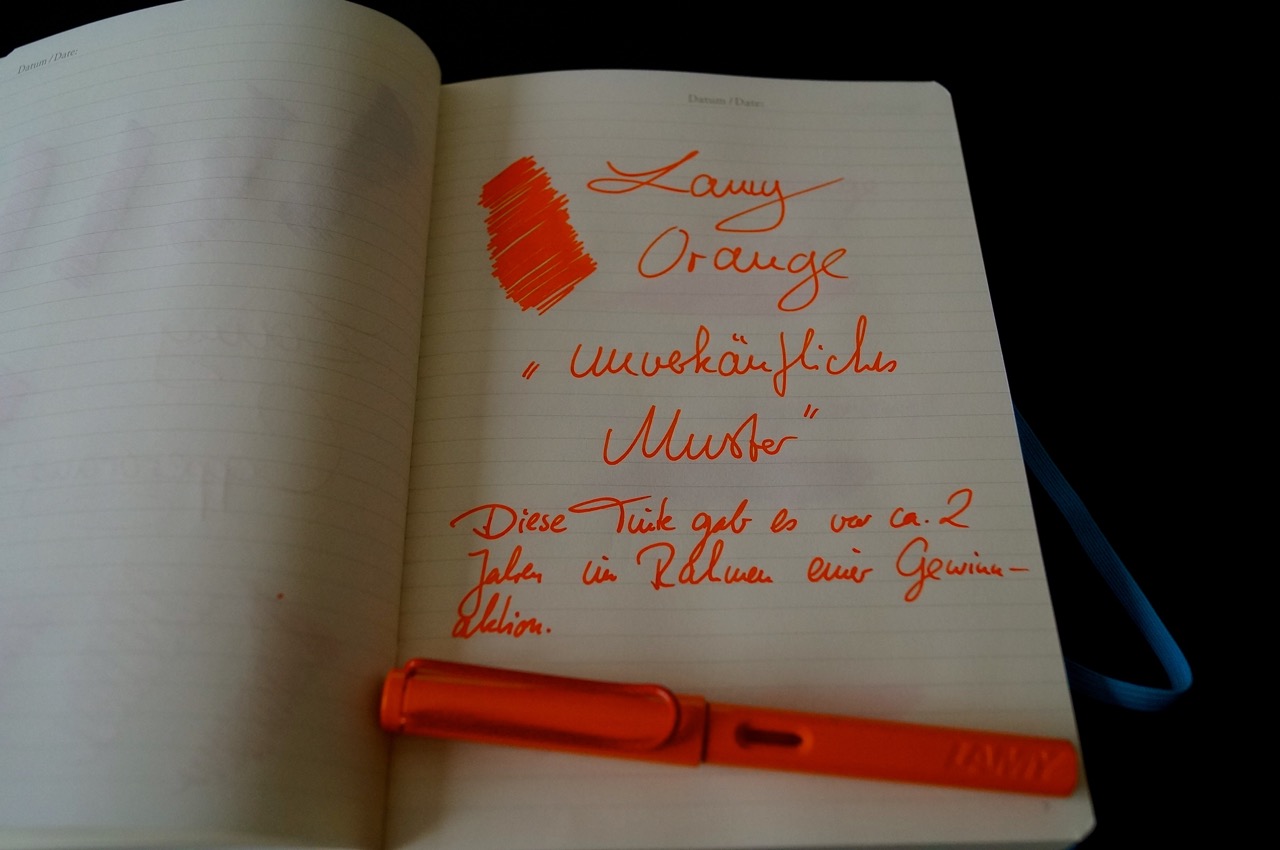 Datum / Date:
Datum / Date:
Lamy
Orange
„ unverkäufliches
Muster“
Diese Tinte gab es vor ca. 2
Jahren im Rahmen einer Gewinn-
aktion.
LAMY